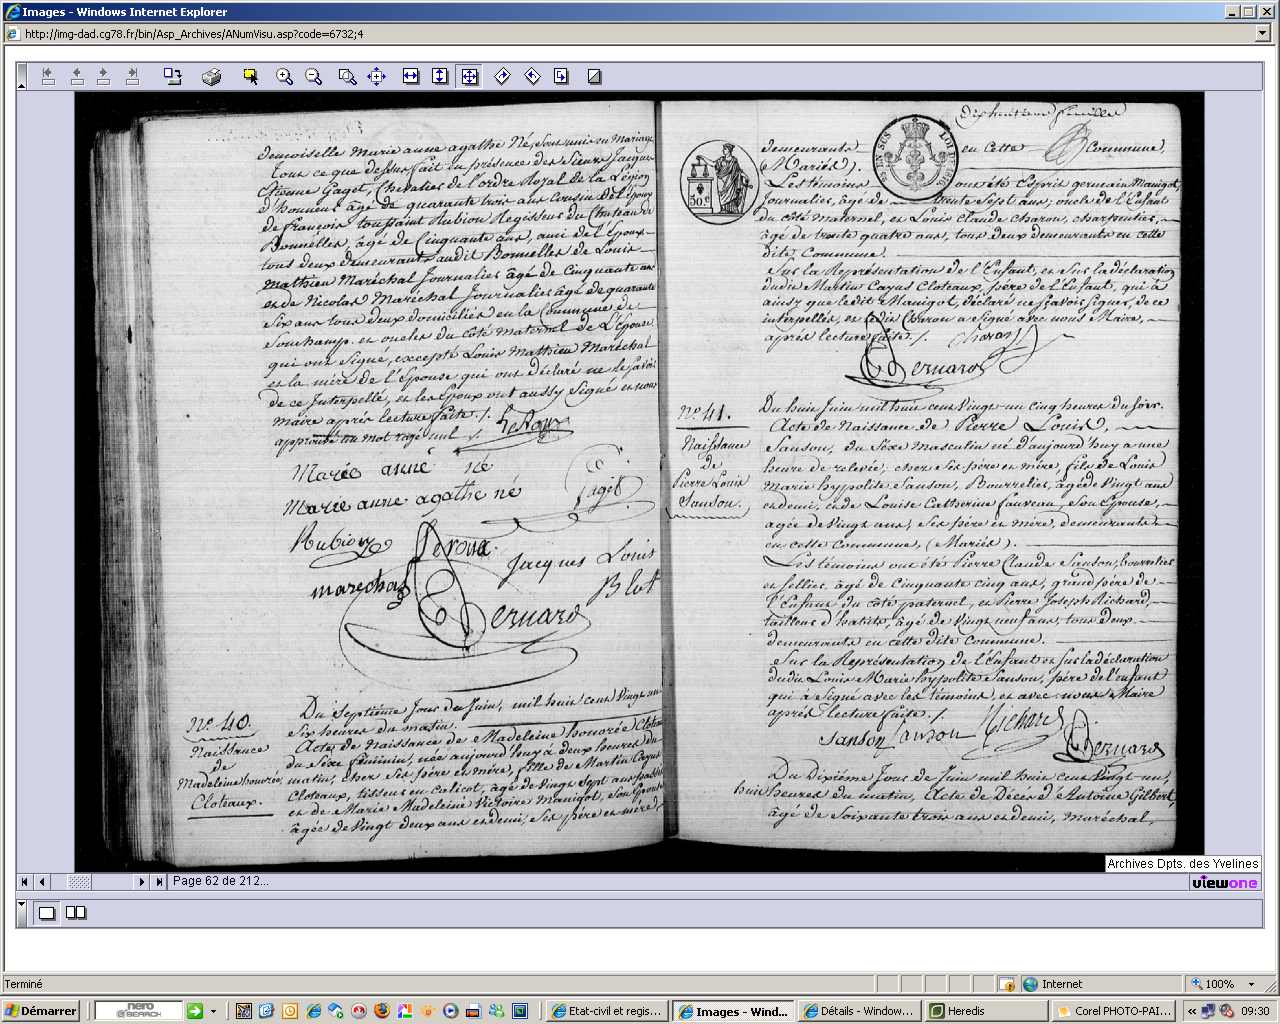 Images - Windows Internet Explorer
http://img-dad.cg78.fr/bin/Asp_Archives/ANumVisu.asp?code=6732;4
demoiselle marie anne agathe Né, sous unis en Mariage
tout ce que dessus fait en présence des Sieurs Jacques
Etienne Gaget, Chevalier de l'ordre Royal de la Légion
d'honneur âgé de quarante trois ans Cousin de l'épouse
de françois toussaint Rubion Regisseur du Chateau de
Bonnelles, âgé de Cinquante ans, ami de l'Epoux
tous deux demeurants audit Bonnelles de Louis
Mathieu Maréchal Journalier âgé de Cinquante ans
et de Nicolas Maréchal Journalier âgé de quarante
six ans tous deux domiciliés en la Commune de
Sonchamp. et oncles du côté maternel de L'épouse
qui ont Signé, excepté Louis Mathieu Maréchal
et la mère de l'Epouse qui ont déclaré ne le savoir
de ce Interpellé, et les Epoux ont aussy Signé et nous
maire après lecture faite ./.
approuvé un mot rayé nul ./. Leroux
Marée anné né
Marie anne agathe né Gaget
Rubion Leroux
Jacques Louis
Blot
marechal
Bernard
N.° 40.
Naissance
de
Madeleine honorée
Cloteaux.
Du Septième Jour de Juin, mil huit cent Vingt un
six heures du matin.
Acte de Naissance de Madeleine honorée Cloteaux
du Sexe féminin, née aujourd'huy à deux heures du
matin, chez Ses père et mère, fille de Martin Cayus
Cloteaux, tisseur en calicot, âgé de Vingt Sept ans passés
et de Marie Madeleine Victoire Manigot, son Epouse
âgée de Vingt deux ans et demi, Ses père et mère,
dixhuitième feuillet
50.c
EN SUS
LOI DE 1816
demeurants en Cette Commune
(Mariés).
Les témoins ont été Esprit germain Manigot,
Journalier, âgé de trente Sept ans, oncle de l'Enfant
du côté maternel, et Louis Claude Charon, charpentier,
âgé de trente quatre ans, tous deux demeurants en cette
dite Commune.
Sur la Représentation de l'Enfant, et Sur la déclaration
dudit Martin Cayus Cloteaux, père de l'Enfant, qui à
ainsy que ledit Manigot, déclaré ne savoir Signer, de ce
interpellés, et ledit Charon a Signé avec nous Maire,
après lecture faite ./. Charon
Bernard
N.° 41.
Naissance
de
Pierre Louis
Sanson.
Du huit Juin mil huit cent Vingt un cinq heures du soir.
Acte de Naissance de Pierre Louis,
Sanson, du Séxe Masculin né d'aujourd'huy a une
heure de relevée, chez Ses père et mère, fils de Louis
Marie hypolite Sanson, Bourrelier, âgé de Vingt ans
et demi, et de Louise Catherine fauveau, Son Epouse,
agée de Vingt ans, Ses père et mère, demeurants
en cette Commune, (Mariés).
Les témoins ont été Pierre Claude Sanson, bourrelier
et sellier, âgé de Cinquante cinq ans, grand père de
l'Enfant du côté paternel, et Pierre Joseph Richard,
tailleur d'habits, âgé de Vingt neuf ans, tous deux
demeurants en cette dite Commune.
Sur la Représentation de l'Enfant et Sur la déclaration
dudit Louis Marie hypolite Sanson, père de l'enfant
qui à Signé avec les témoins, et avec nous Maire
après Lecture faite ./.
Sanson Sanson Richard Bernard
Du Dixième Jour de Juin mil huit cent Vingt un,
huit heures du matin, Acte de Décès d'Antoine Gilbert,
âgé de Soixante trois ans et demi, maréchal,
Archives Dpts. des Yvelines
Page 62 de 212...
viewone
Terminé
Internet
100%
Démarrer
nero
SEARCH
Etat-civil et regis...
Images - Wind...
Détails - Window...
Heredis
Corel PHOTO-PAI...
09:30